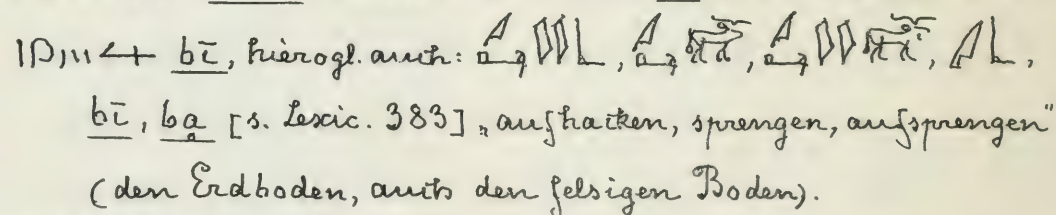 bī, hierogl. auch: , , , ,
bī, ba [s. Lexic. 383] „aufhacken, sprengen, aufsprengen“
(den Erdboden, auch den felsigen Boden).